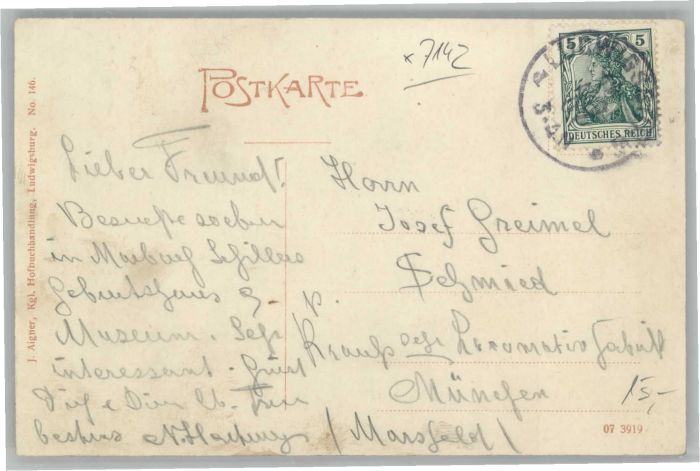 *7142
POSTKARTE
5 5
DEUTSCHES REICH
J. Aigner, Kgl. Hofbuchhandlung, Ludwigsburg. No. 146.
Lieber Freund!
Besuchte soeben
in Marbach Schillers
Geburtshaus &
Museum. Sehr
interessant. Grüst
Dich & Deine lb. Frau
bestens
Herrn
Josef Greimel
Schmied
p.
Krauß'sche Locomotiv Fabrik
München
/Marsfeld/
15,-
07 3919